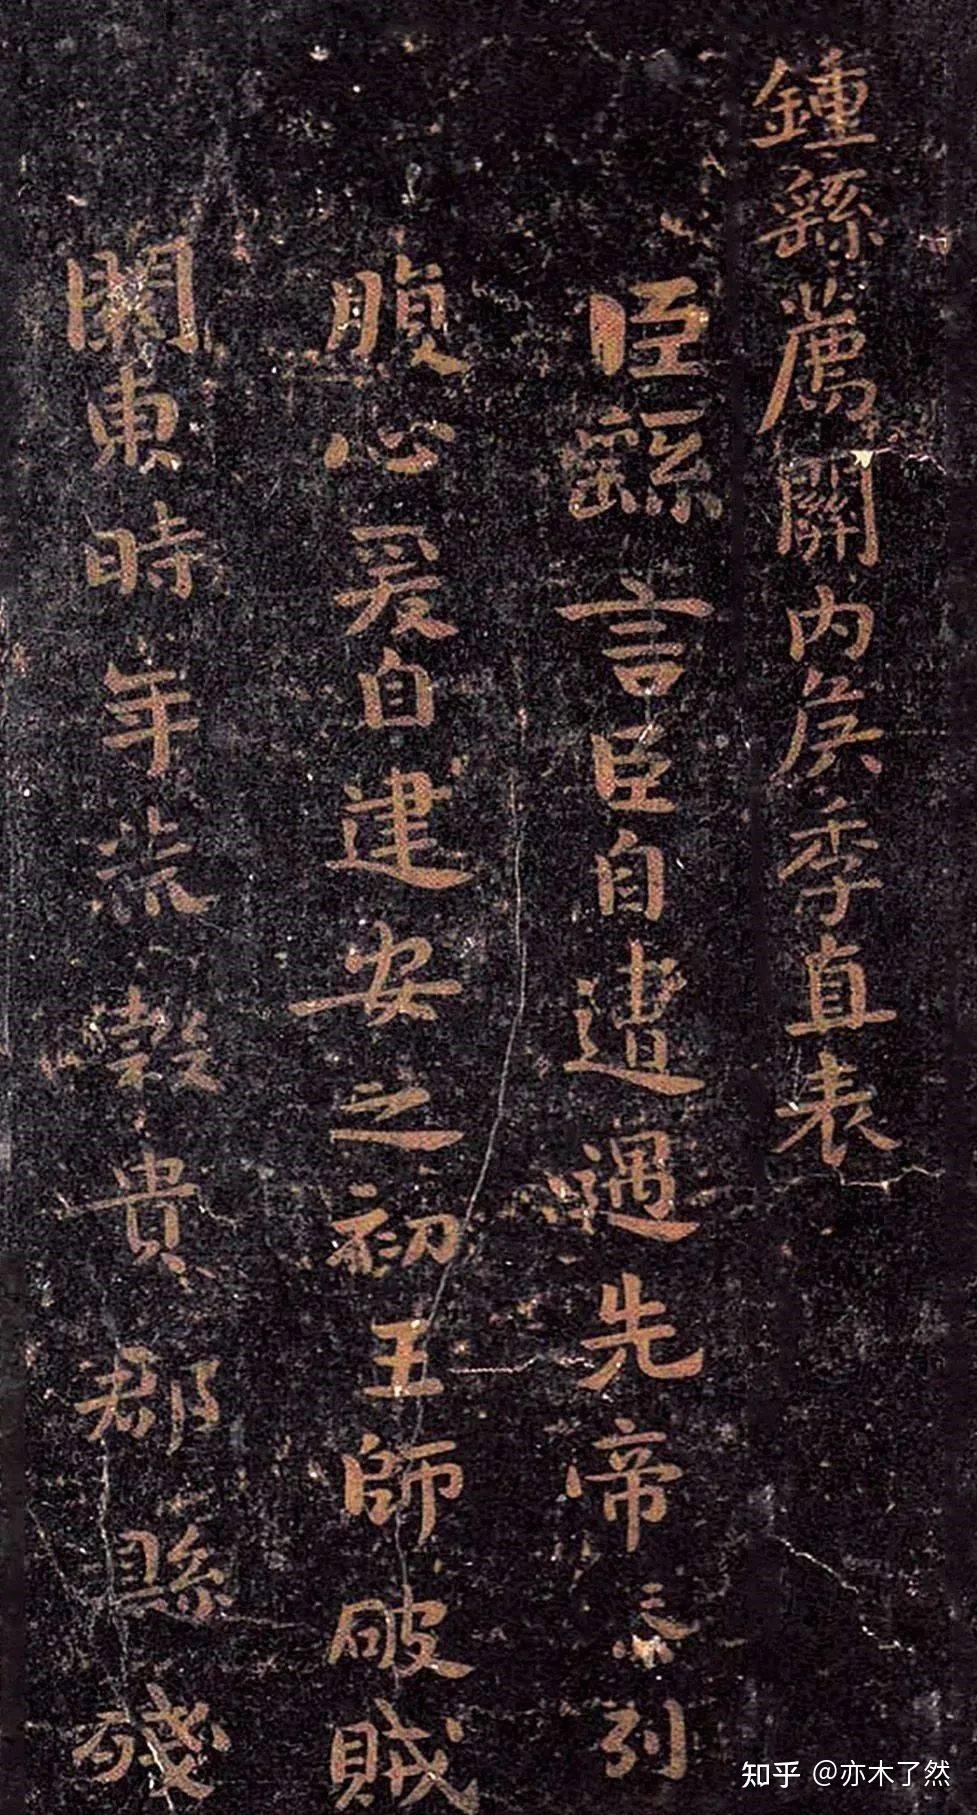 鍾繇薦關內侯季直表
臣繇言臣自遭遇先帝忝列
腹心爰自建安之初王師破賊
關東時年荒榖貴郡縣殘
知乎 @亦木了然